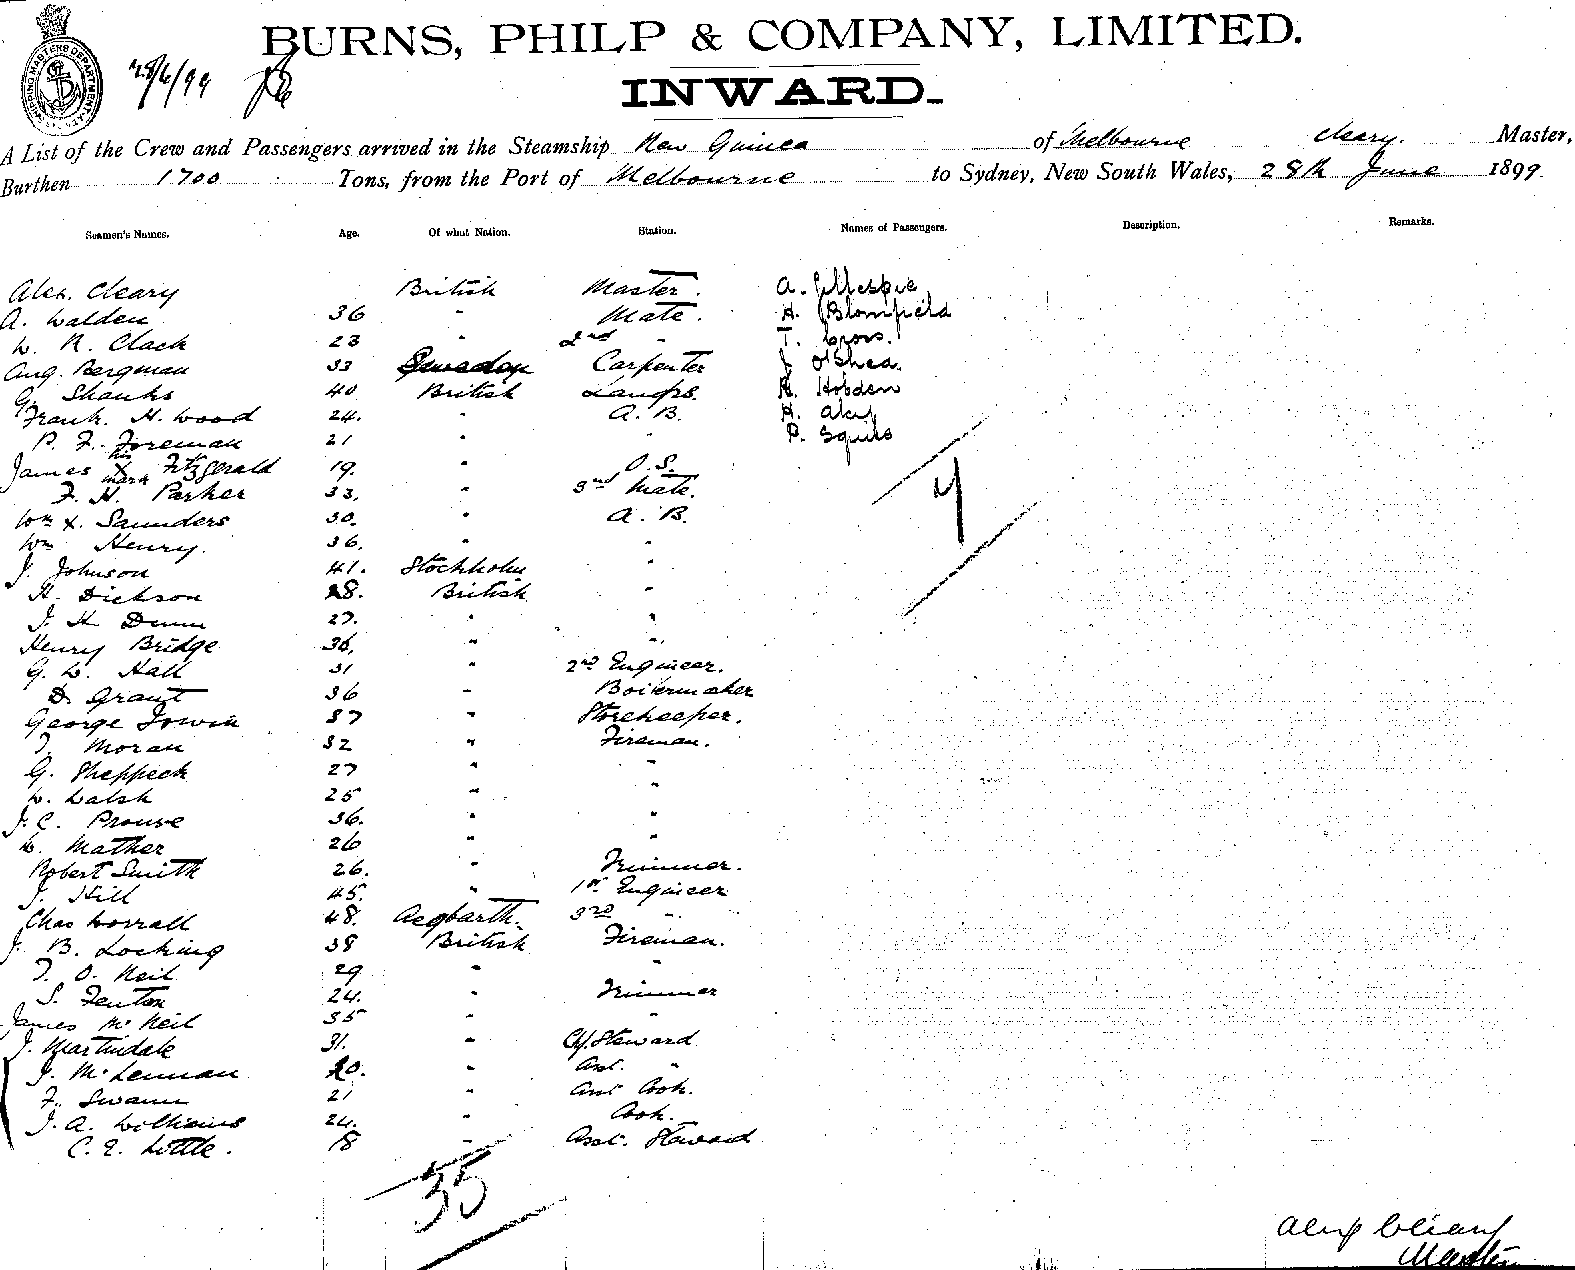 BURNS, PHILP & COMPANY, LIMITED.
28/6/99
INWARD.
A List of the Crew and Passengers arrived in the Steamship New Guinea of Melbourne Cleary. Master,
Burthen 1700 Tons, from the Port of Melbourne to Sydney, New South Wales, 28th June 1899
Seamen's Names. Age. Of what Nation. Station. Names of Passengers. Description. Remarks.
Alex. Cleary British Master. A. Gillespie
A. Walden 36 " Mate. H. Blomfield
W. R. Clack 23 " 2nd " T.
Aug. Bergman 33 Sweden Carpenter J O'Shea.
G. Shanks 40 British Lamps. H. Hobden
Frank. H. Wood 24. " A. B. H.
P. F. Foreman 21 " " P. Squils
James his X mark Fitzgerald 19. " O. S.
F. H. Parker 33. " 3rd Mate.
Wm X. Saunders 30. " A. B.
Wm Henry. 36. " "
J. Johnson 41. Stockholm "
H. Dickson 28. British "
J. H. Dunn 27. " "
Henry Bridge 36. " "
G. W. Hall 31 " 2nd Engineer.
D. Grant 36 " Boilermaker
George Irwin 37 " Storekeeper.
T. Moran 32 " Fireman.
G. Sheppeck 27 " "
W. Walsh 25 " "
J. C. Prouse 36. " "
W. Mather 26 " "
Robert Smith 26. " Trimmer.
J. Hill 45. " 1st Engineer
Chas Worrall 48. 3rd "
J. B. Locking 38 British Fireman.
T. O. Neil 29 " "
S. Fenton 24. " Trimmer
James McNeil 35 " "
J. Martindale 31. " Cf. Steward
J. McLennan 20. " Asst. "
F. Swann 21 " Asst Cook.
J. A. Williams 24. " Cook.
C. E. Little. 18 " Asst. Steward
7
35
Alex Cleary
Master